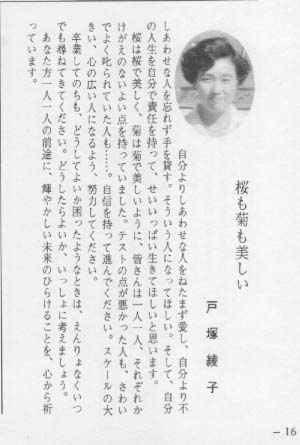 桜も菊も美しい
戸塚綾子
自分よりしあわせな人をねたまず愛し、自分より不
しあわせな人を忘れず手を貸す。そういう人になってほしい。そして、自分
の人生を自分で責任を持って、せいいっぱい生きてほしいと思います。
桜は桜で美しく、菊は菊で美しいように、皆さんは一人一人、それぞれか
けがえのないよい点を持っていました。テストの点が悪かった人も、さわい
でよく叱られていた人も……。自信を持って進んでください。スケールの大
きい、心の広い人になるよう、努力してください。
卒業してのちも、どうしてよいか困ったようなときは、えんりょなくいつ
でも尋ねてきてください。どうしたらよいか、いっしょに考えましょう。
あなた方一人一人の前途に、輝やかしい未来のひらけることを、心から祈
っています。
－16